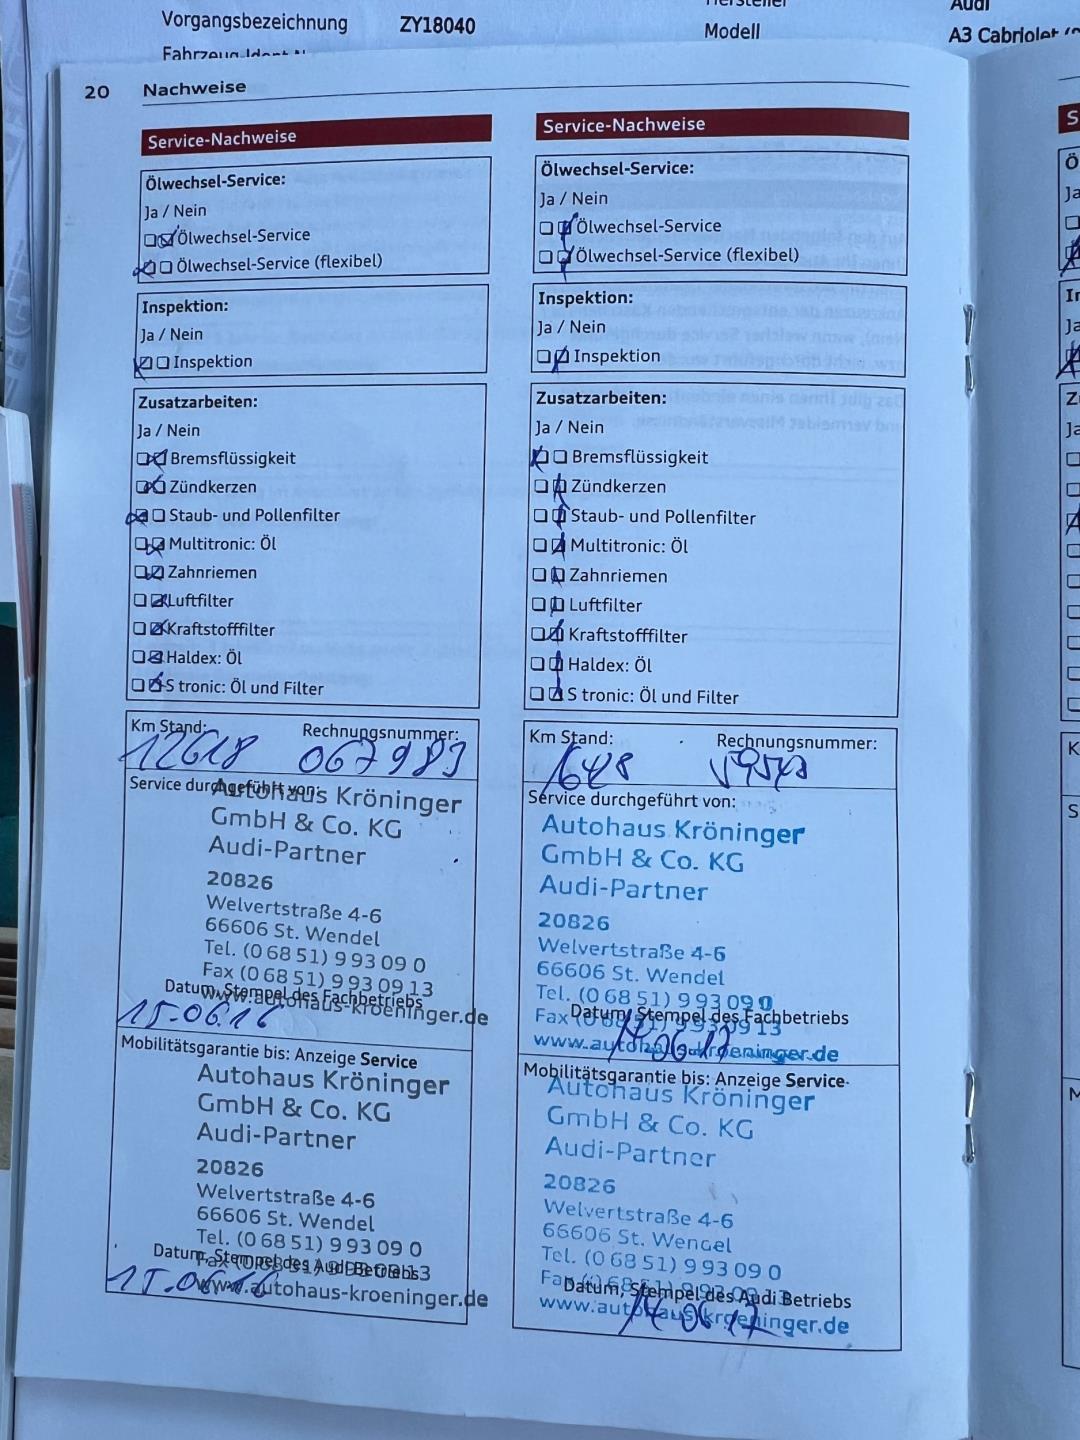 Vorgangsbezeichnung ZY18040
Hersteller Audi
Modell A3 Cabriolet
20 Nachweise
Service-Nachweise
Ölwechsel-Service:
Ja / Nein
Ölwechsel-Service
Ölwechsel-Service (flexibel)
Inspektion:
Ja / Nein
Inspektion
Zusatzarbeiten:
Ja / Nein
Bremsflüssigkeit
Zündkerzen
Staub- und Pollenfilter
Multitronic: Öl
Zahnriemen
Luftfilter
Kraftstofffilter
Haldex: Öl
S tronic: Öl und Filter
Km Stand: Rechnungsnummer:
12618 067983
Service durchgeführt von:
Autohaus Kröninger
GmbH & Co. KG
Audi-Partner
20826
Welvertstraße 4-6
66606 St. Wendel
Tel. (0 68 51) 9 93 09 0
Fax (0 68 51) 9 93 09 13
www.autohaus-kroeninger.de
Datum, Stempel des Fachbetriebs
15.06.16
Mobilitätsgarantie bis: Anzeige Service
Autohaus Kröninger
GmbH & Co. KG
Audi-Partner
20826
Welvertstraße 4-6
66606 St. Wendel
Tel. (0 68 51) 9 93 09 0
Fax (0 68 51) 9 93 09 13
Datum, Stempel des Audi Betriebs
15.06.16
www.autohaus-kroeninger.de
Service-Nachweise
Ölwechsel-Service:
Ja / Nein
Ölwechsel-Service
Ölwechsel-Service (flexibel)
Inspektion:
Ja / Nein
Inspektion
Zusatzarbeiten:
Ja / Nein
Bremsflüssigkeit
Zündkerzen
Staub- und Pollenfilter
Multitronic: Öl
Zahnriemen
Luftfilter
Kraftstofffilter
Haldex: Öl
S tronic: Öl und Filter
Km Stand: Rechnungsnummer:
Service durchgeführt von:
Autohaus Kröninger
GmbH & Co. KG
Audi-Partner
20826
Welvertstraße 4-6
66606 St. Wendel
Tel. (0 68 51) 9 93 09 0
Datum, Stempel des Fachbetriebs
Fax (0 68 51) 9 93 09 13
14.06.17
www.autohaus-kroeninger.de
Mobilitätsgarantie bis: Anzeige Service
Autohaus Kröninger
GmbH & Co. KG
Audi-Partner
20826
Welvertstraße 4-6
66606 St. Wendel
Tel. (0 68 51) 9 93 09 0
Fax (0 68 51) 9 93 09 13
Datum, Stempel des Audi Betriebs
www.autohaus-kroeninger.de
14.06.17